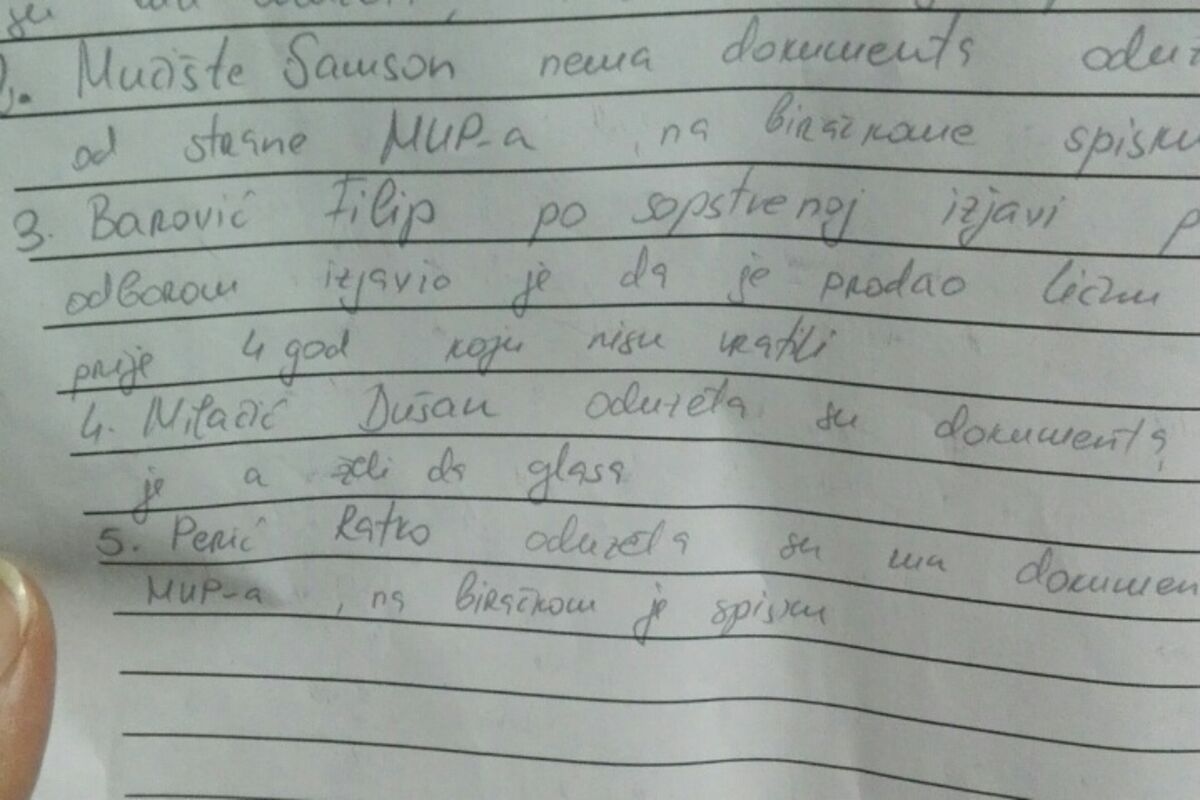 2. Mučište Samson nema dokumenta oduz
od strane MUP-a, na biračkome spisku
3. Barović Filip po sopstvenoj izjavi p
odborom izjavio je da je prodao ličnu
prije 4 god koju nisu vratili
4. Milačić Dušan oduzeta su dokumenta,
je a želi da glasa
5. Perić Ratko oduzeta su mu dokumen
MUP-a, na biračkom je spisku